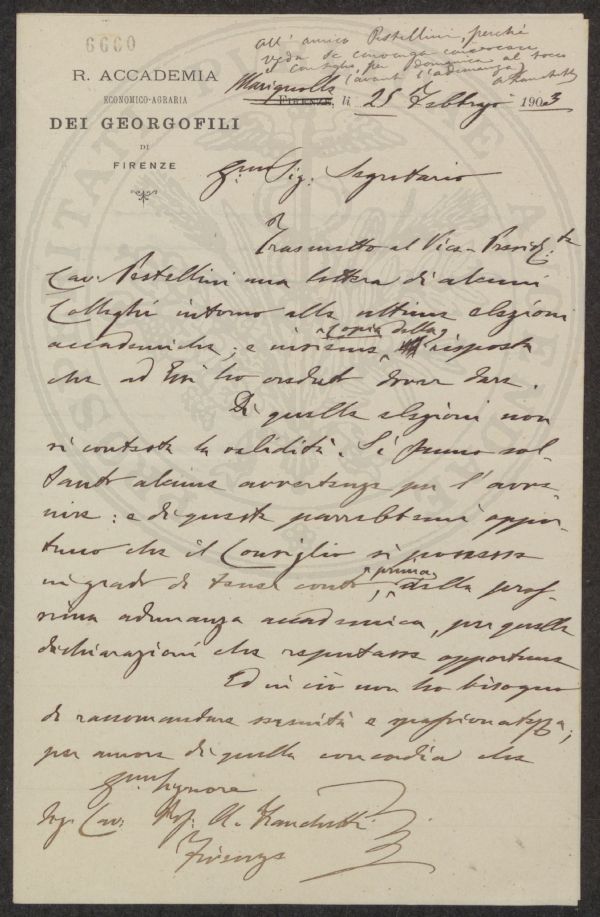 6600
All' amico Pestellini, perchè
veda se convenga convocare
il consiglio per domenica al tocco
(avanti l'adunanza)
R. ACCADEMIA
ECONOMICO-AGRARIA
DEI GEORGOFILI
DI
FIRENZE
Marignolle FIRENZE, li 25 Febbrajo 1903
Sig. Segretario
Trasmetto al Vice-Presid.te
Cav. Pestellini una lettera di alcuni
Colleghi intorno alle ultime elezioni
accademiche; e insieme copia della risposta
che ad Essi ho creduto dover dare.
Di quelle elezioni non
si contesta la validità. Si fanno sol-
tanto alcune avvertenze per l'avve-
nire: e di queste parrebbemi oppor-
tuno che il Consiglio si ponesse
in grado di tener conto prima della pros-
sima adunanza accademica, per quelle
dichiarazioni che reputasse opportune
Ed in ciò non ho bisogno
di raccomandare serenità e spassionatezza;
per amore di quella concordia che
Signore
Ing. Cav. Prof. A. Franchetti
Firenze